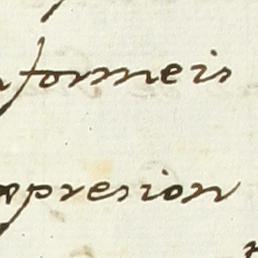 formeis
presion